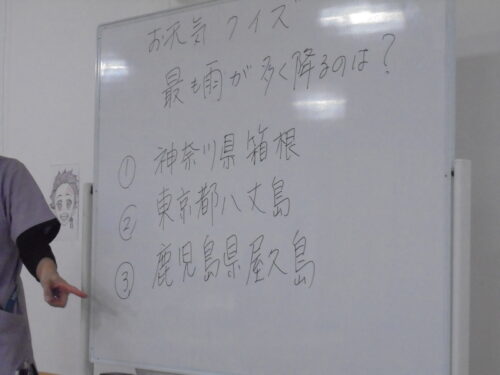 お天気クイズ
最も雨が多く降るのは？
① 神奈川県箱根
② 東京都八丈島
③ 鹿児島県屋久島